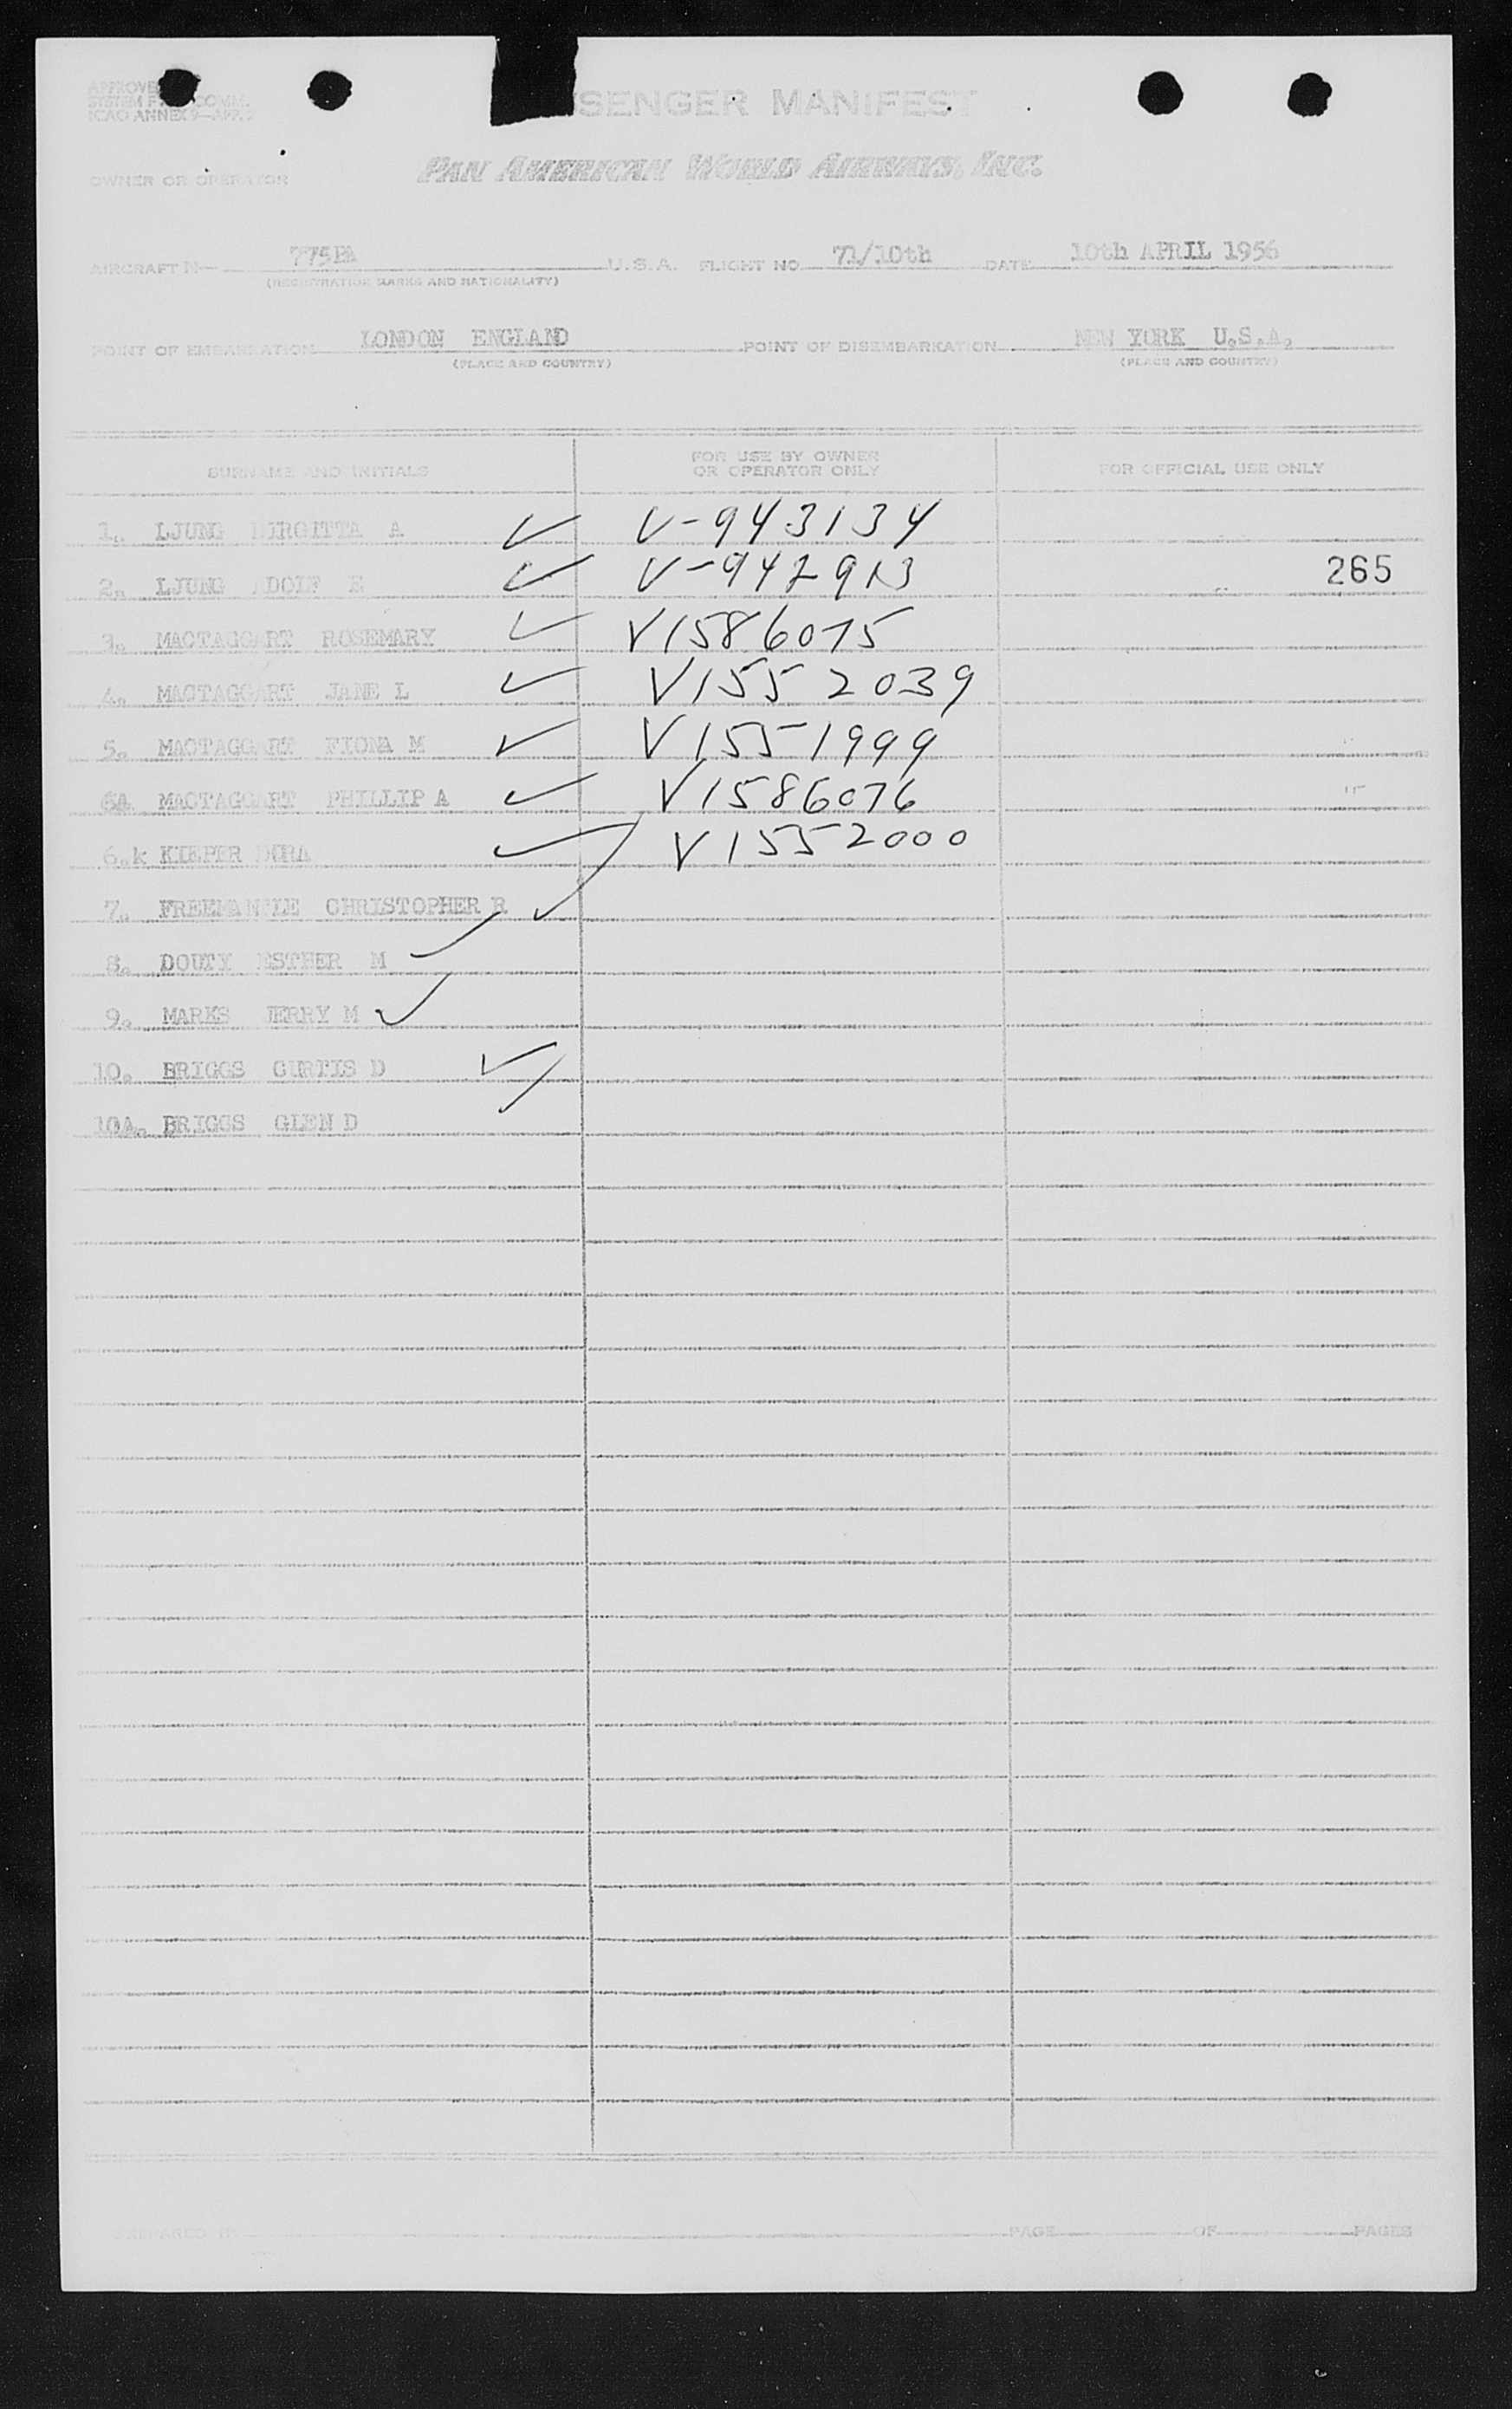 APPROVE
SYSTEM F COMM.
ICAO ANNEX 9—APP. 2
SENGER MANIFEST
OWNER OR OPERATOR PAN AMERICAN WORLD AIRWAYS, INC.
AIRCRAFT N— 775PA U.S.A. FLIGHT NO. 71/10th DATE 10th APRIL 1956
(REGISTRATION MARKS AND NATIONALITY)
POINT OF EMBARKATION LONDON ENGLAND POINT OF DISEMBARKATION NEW YORK U.S.A.
(PLACE AND COUNTRY) (PLACE AND COUNTRY)
SURNAME AND INITIALS FOR USE BY OWNER OR OPERATOR ONLY FOR OFFICIAL USE ONLY
1. LJUNG BIRGITTA A ✓ V-943134
2. LJUNG ADOLF E ✓ V-942913 265
3. MACTAGGART ROSEMARY ✓ V1586075
4. MACTAGGART JANE L ✓ V1552039
5. MACTAGGART FIONA M ✓ V1551999
6A MACTAGGART PHILLIP A ✓ V1586076
6.k KIEPER DORA ✓ V1552000
7. FREEMANTLE CHRISTOPHER R ✓
8. DOUTY ESTHER M ✓
9. MARKS JERRY M ✓
10. BRIGGS CURTIS D ✓
10A. BRIGGS GLEN D ✓
PREPARED BY PAGE OF PAGES